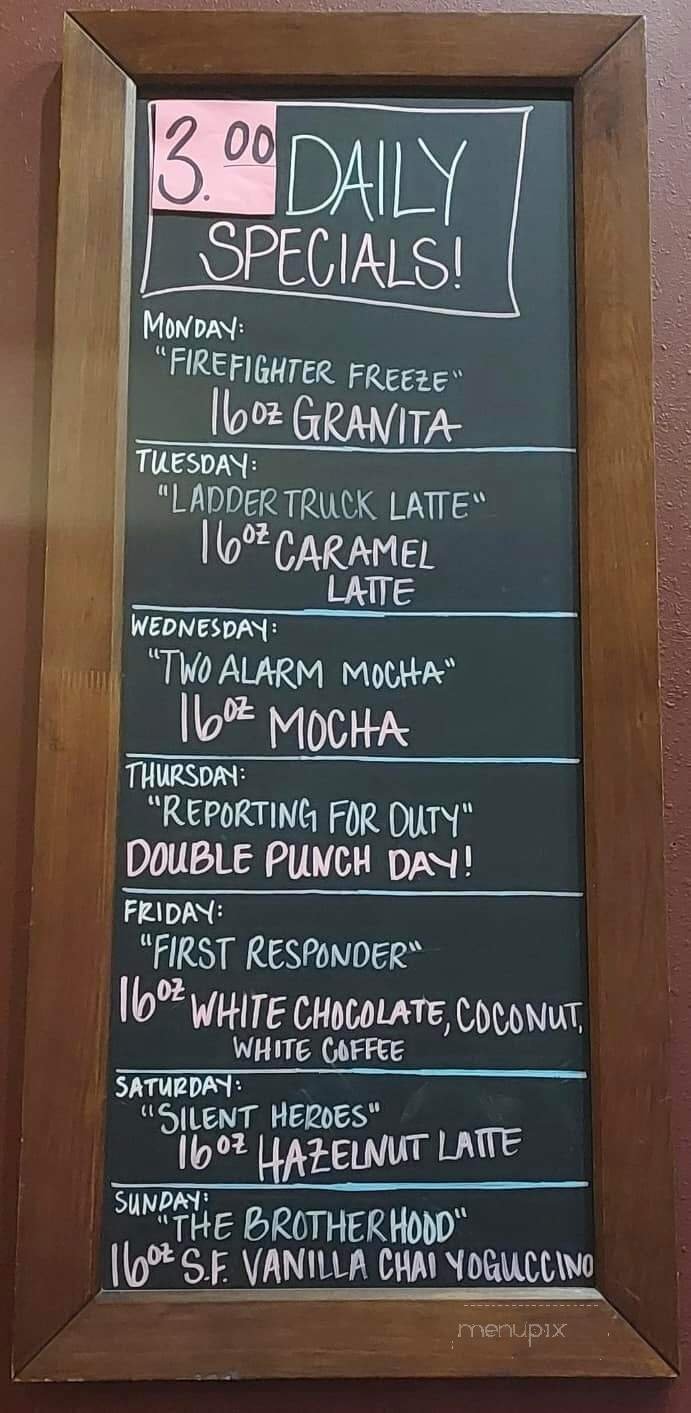 3.00 DAILY
SPECIALS!
MONDAY:
"FIREFIGHTER FREEZE"
16oz GRANITA
TUESDAY:
"LADDER TRUCK LATTE"
16oz CARAMEL
LATTE
WEDNESDAY:
"TWO ALARM MOCHA"
16oz MOCHA
THURSDAY:
"REPORTING FOR DUTY"
DOUBLE PUNCH DAY!
FRIDAY:
"FIRST RESPONDER"
16oz WHITE CHOCOLATE, COCONUT,
WHITE COFFEE
SATURDAY:
"SILENT HEROES"
16oz HAZELNUT LATTE
SUNDAY:
"THE BROTHERHOOD"
16oz S.F. VANILLA CHAI YOGUCCINO
menupix